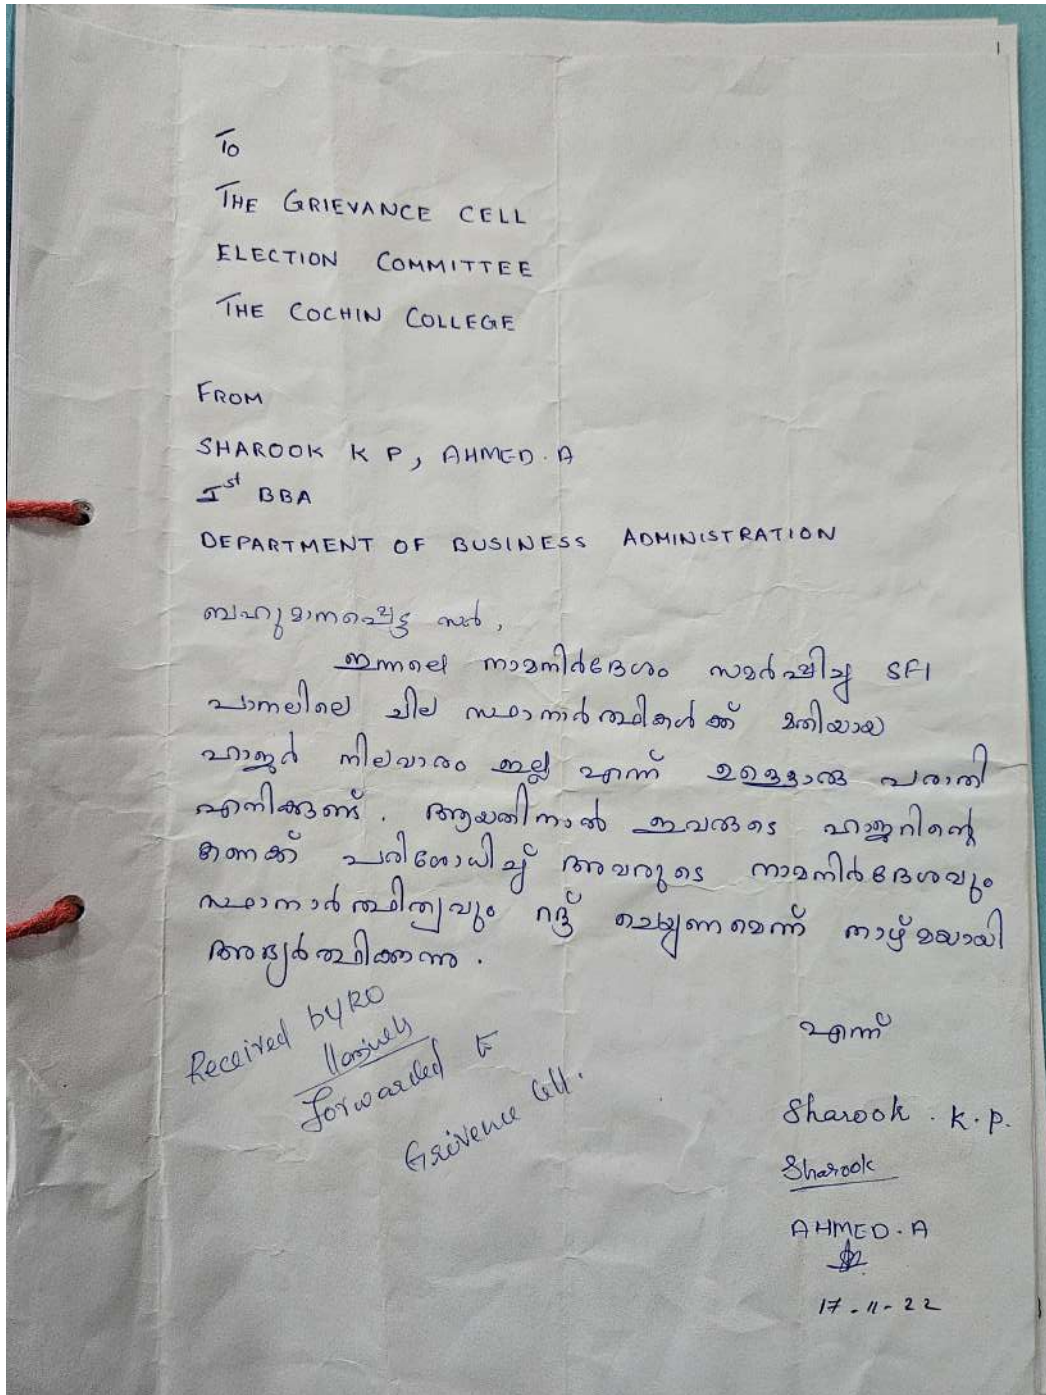 1
To
THE GRIEVANCE CELL
ELECTION COMMITTEE
THE COCHIN COLLEGE
FROM
SHAROOK K P, AHMED.A
Ist BBA
DEPARTMENT OF BUSINESS ADMINISTRATION
ബഹുമാനപ്പെട്ട സർ,
ഇന്നലെ നാമനിർദേശം സമർപ്പിച്ച SFI
പാനലിലെ ചില സ്ഥാനാർത്ഥികൾക്ക് മതിയായ
ഹാജർ നിലവാരം ഇല്ല എന്ന് ഉള്ളൊരു പരാതി
എനിക്കുണ്ട്. ആയതിനാൽ ഇവരുടെ ഹാജറിന്റെ
കണക്ക് പരിശോധിച്ച് അവരുടെ നാമനിർദേശവും
സ്ഥാനാർത്ഥിത്വവും റദ്ദ് ചെയ്യണമെന്ന് താഴ്മയായി
അഭ്യർത്ഥിക്കുന്നു.
Received by RO
Forwarded to
Grivence Cell.
എന്ന്
Sharook . K.P.
Sharook
AHMED.A
17-11-22